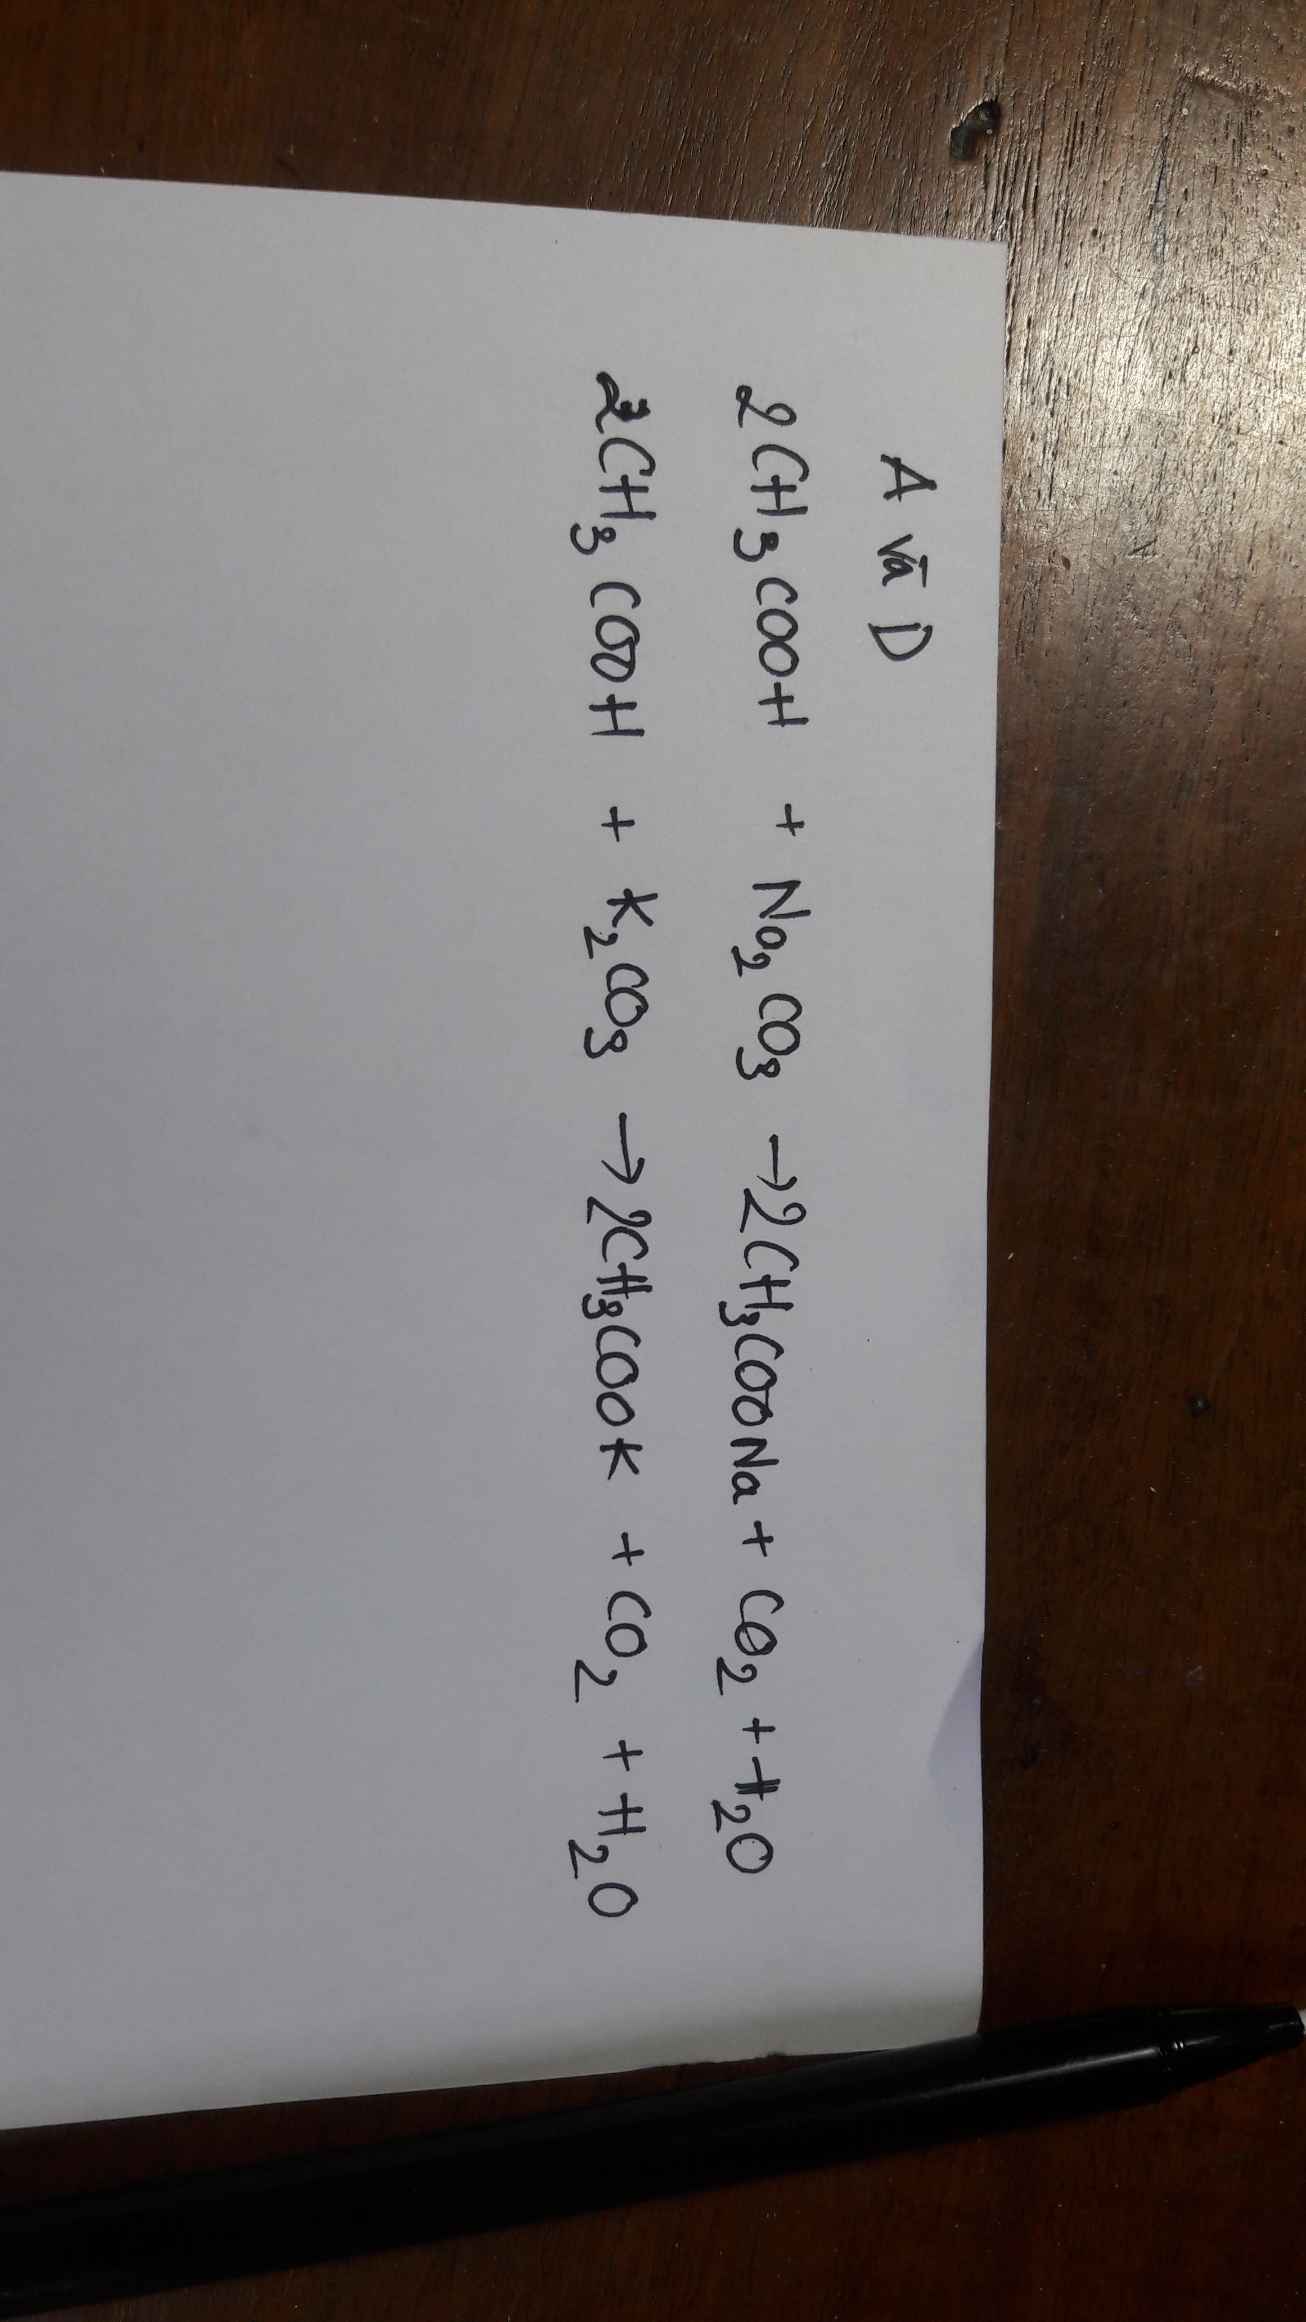 A và D
2CH₃COOH + Na₂CO₃ → 2CH₃COONa + CO₂ + H₂O
2CH₃COOH + K₂CO₃ → 2CH₃COOK + CO₂ + H₂O